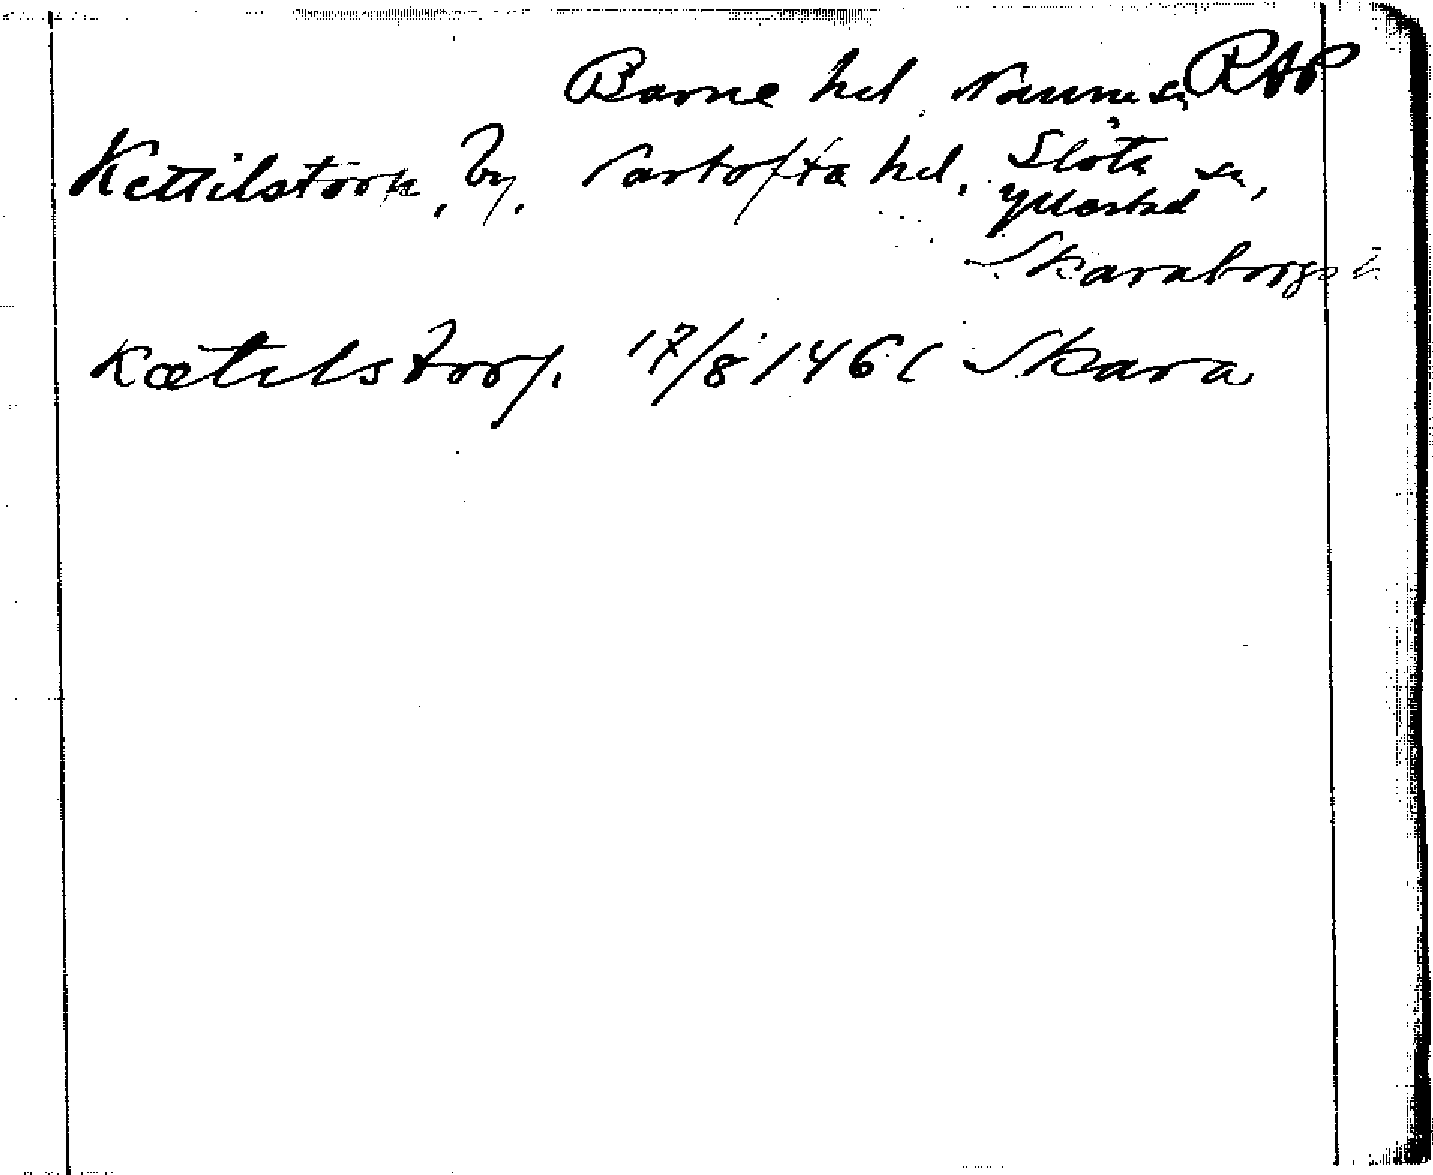 Barne hd, Naum sn RAP
Kettilstorp, by, Vartofta hd, Slöta sn,
Yllestad
Skaraborgs l.
Kætilstorp. 17/8 1461 Skara